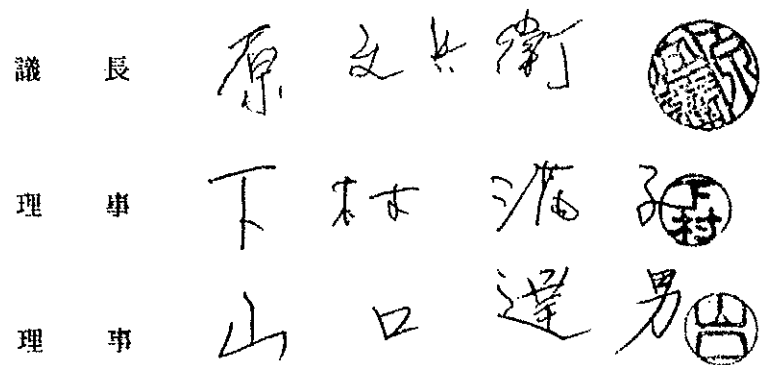 議長 原文兵衛
理事 下村満子 下村
理事 山口達男 山口